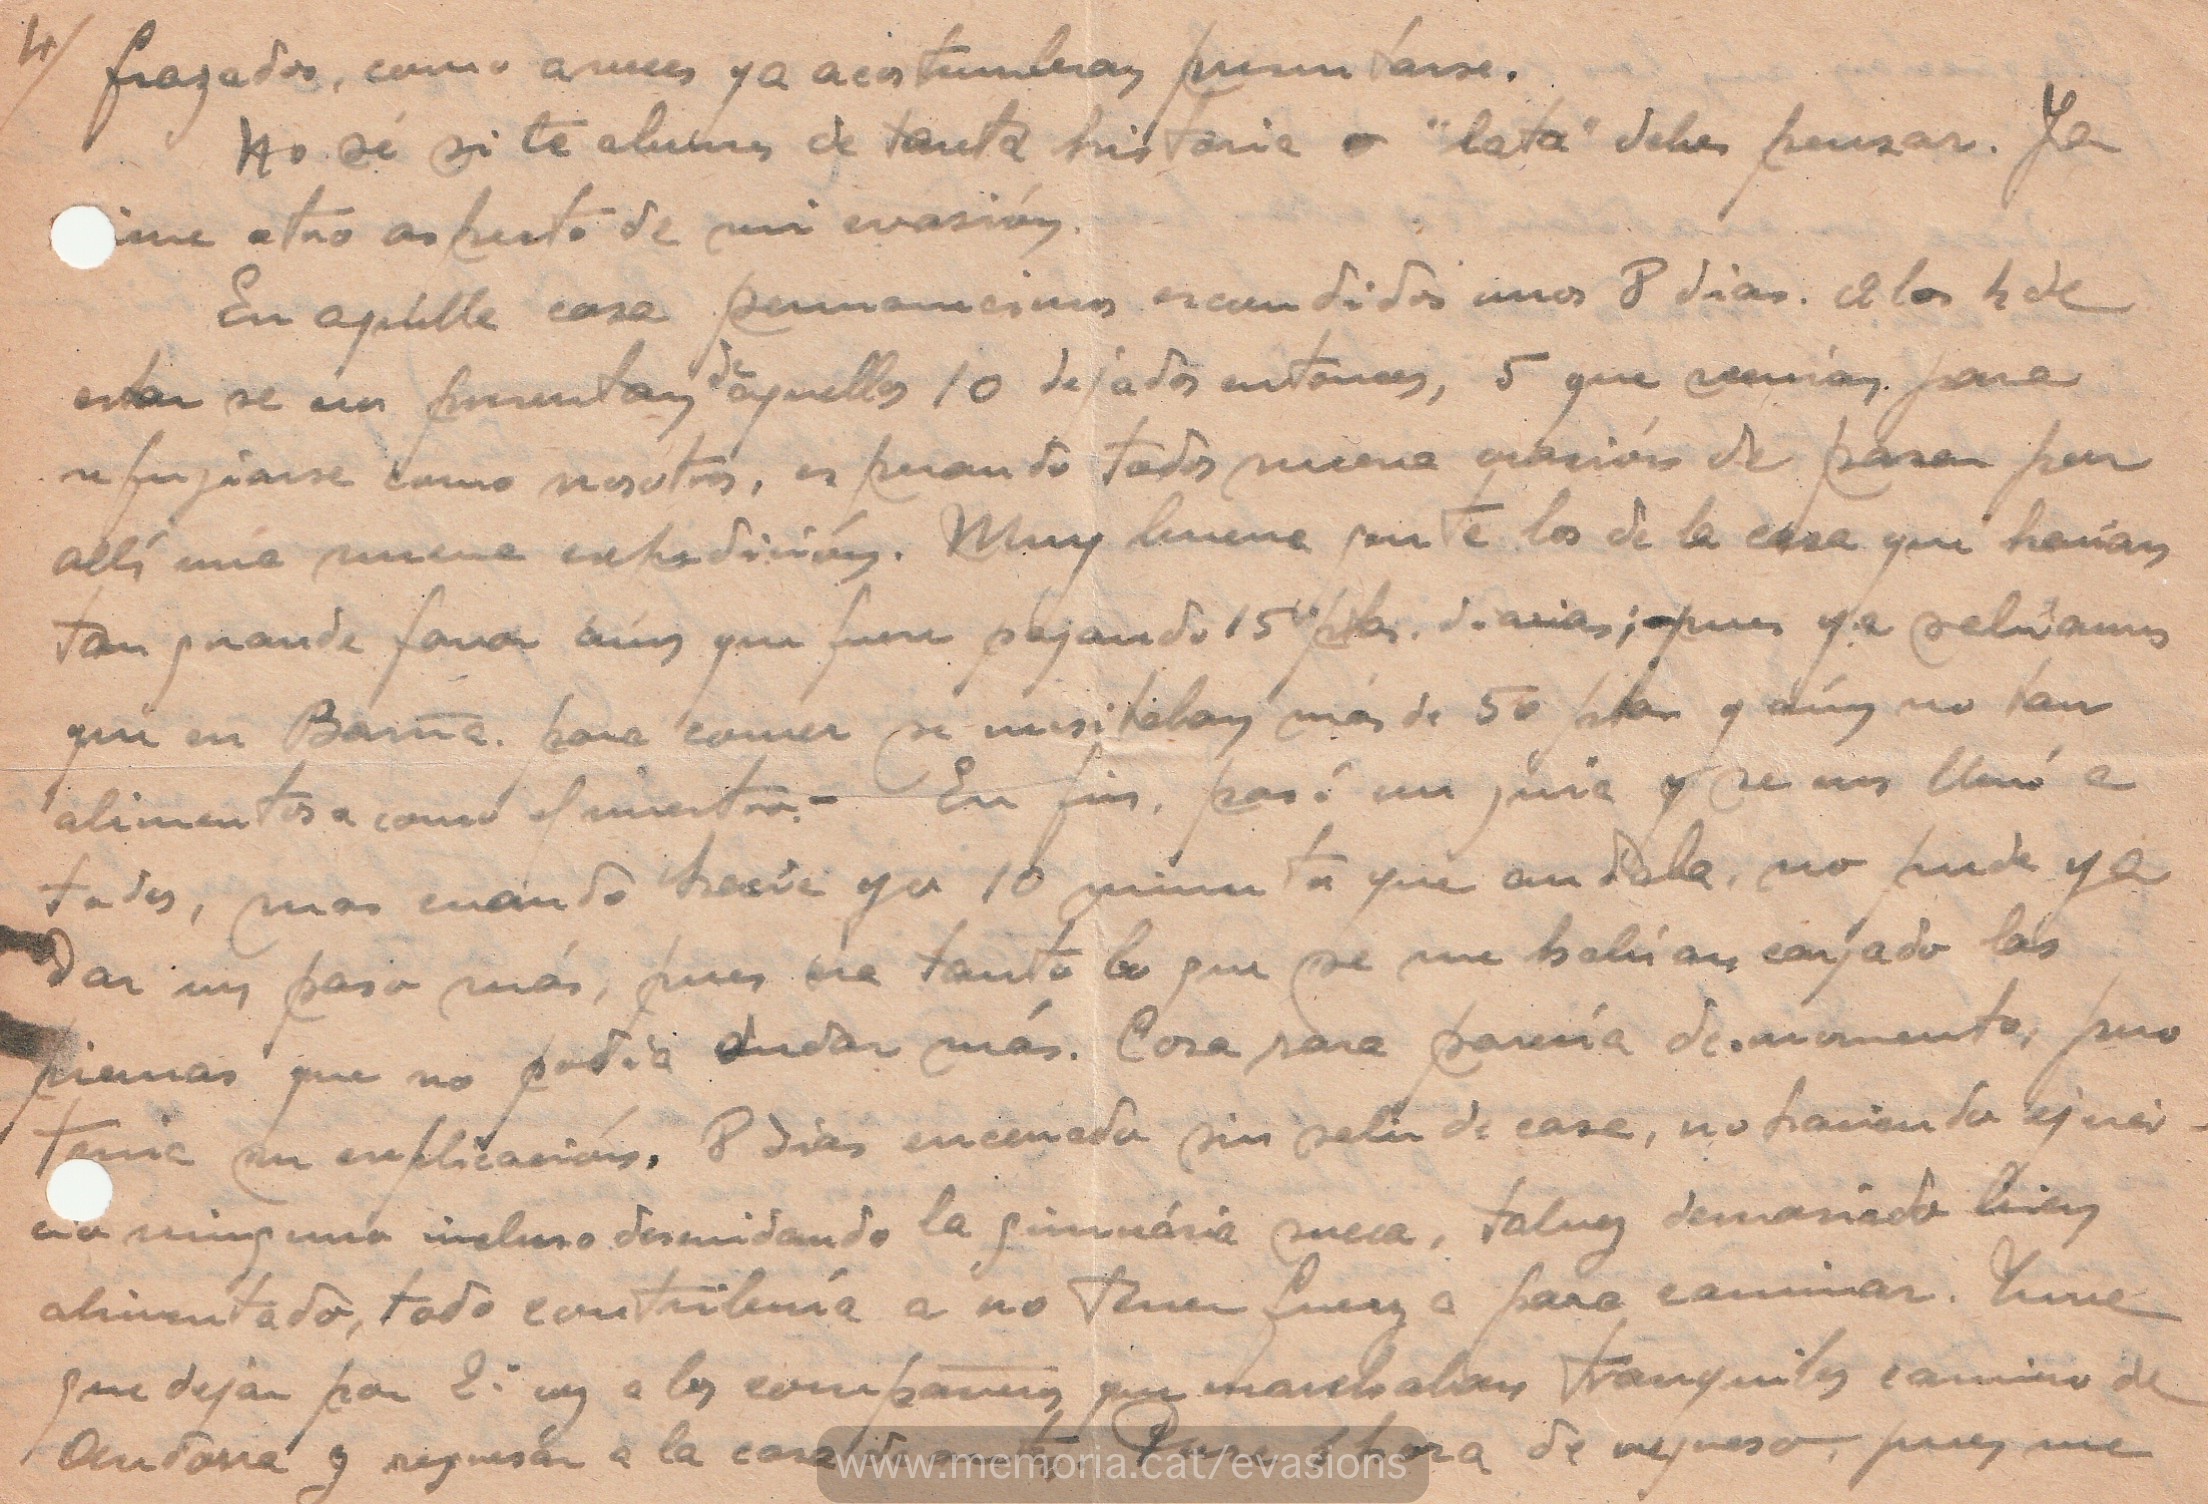 4/
frazados, como aveces ya acostumbran presentarse.
No sé si te aburres de tanta historia o "lata" debes pensar. Ya
otro aspecto de mi evasión.
En aquélla casa permanecimos escondidos unos 8 dias. A los 4 de
estar se nos presentan de aquellos 10 dejados entonces, 5 que venían para
refugiarse como nosotros, esperando todos nueva ocasión de pasar por
allí una nueva expedición. Muy buena gente los de la casa que hacían
tan grande favor aún que fuere pagando 15 ptas. diarias; pues ya sabíamos
que en Barna. para comer se nesitaban más de 50 ptas y aún no tan
alimentosa como el nuestro.- En fin, pasó un guía y se nos llevó a
todos, mas cuando hacía ya 10 minuto que andaba, no pude ya
dar un paso más, pues era tanto lo que se me habían cargado las
piernas que no podía andar más. Cosa rara parecía de momento, pero
tenía su explicación. 8 dias encerrado sin salir de casa, no haciendo ejerci-
cio ninguno incluso descuidando la gimnásia sueca, talvez demasiado bien
alimentado, todo contribuía a no tener fuerza para caminar. Tuve
que dejar por 2ª vez a los compañeros que marchaban tranquilos camino de
Andorra y regresár a la casa de antes. Pasé 1 hora de regreso, pues me
www.memoria.cat/evasions